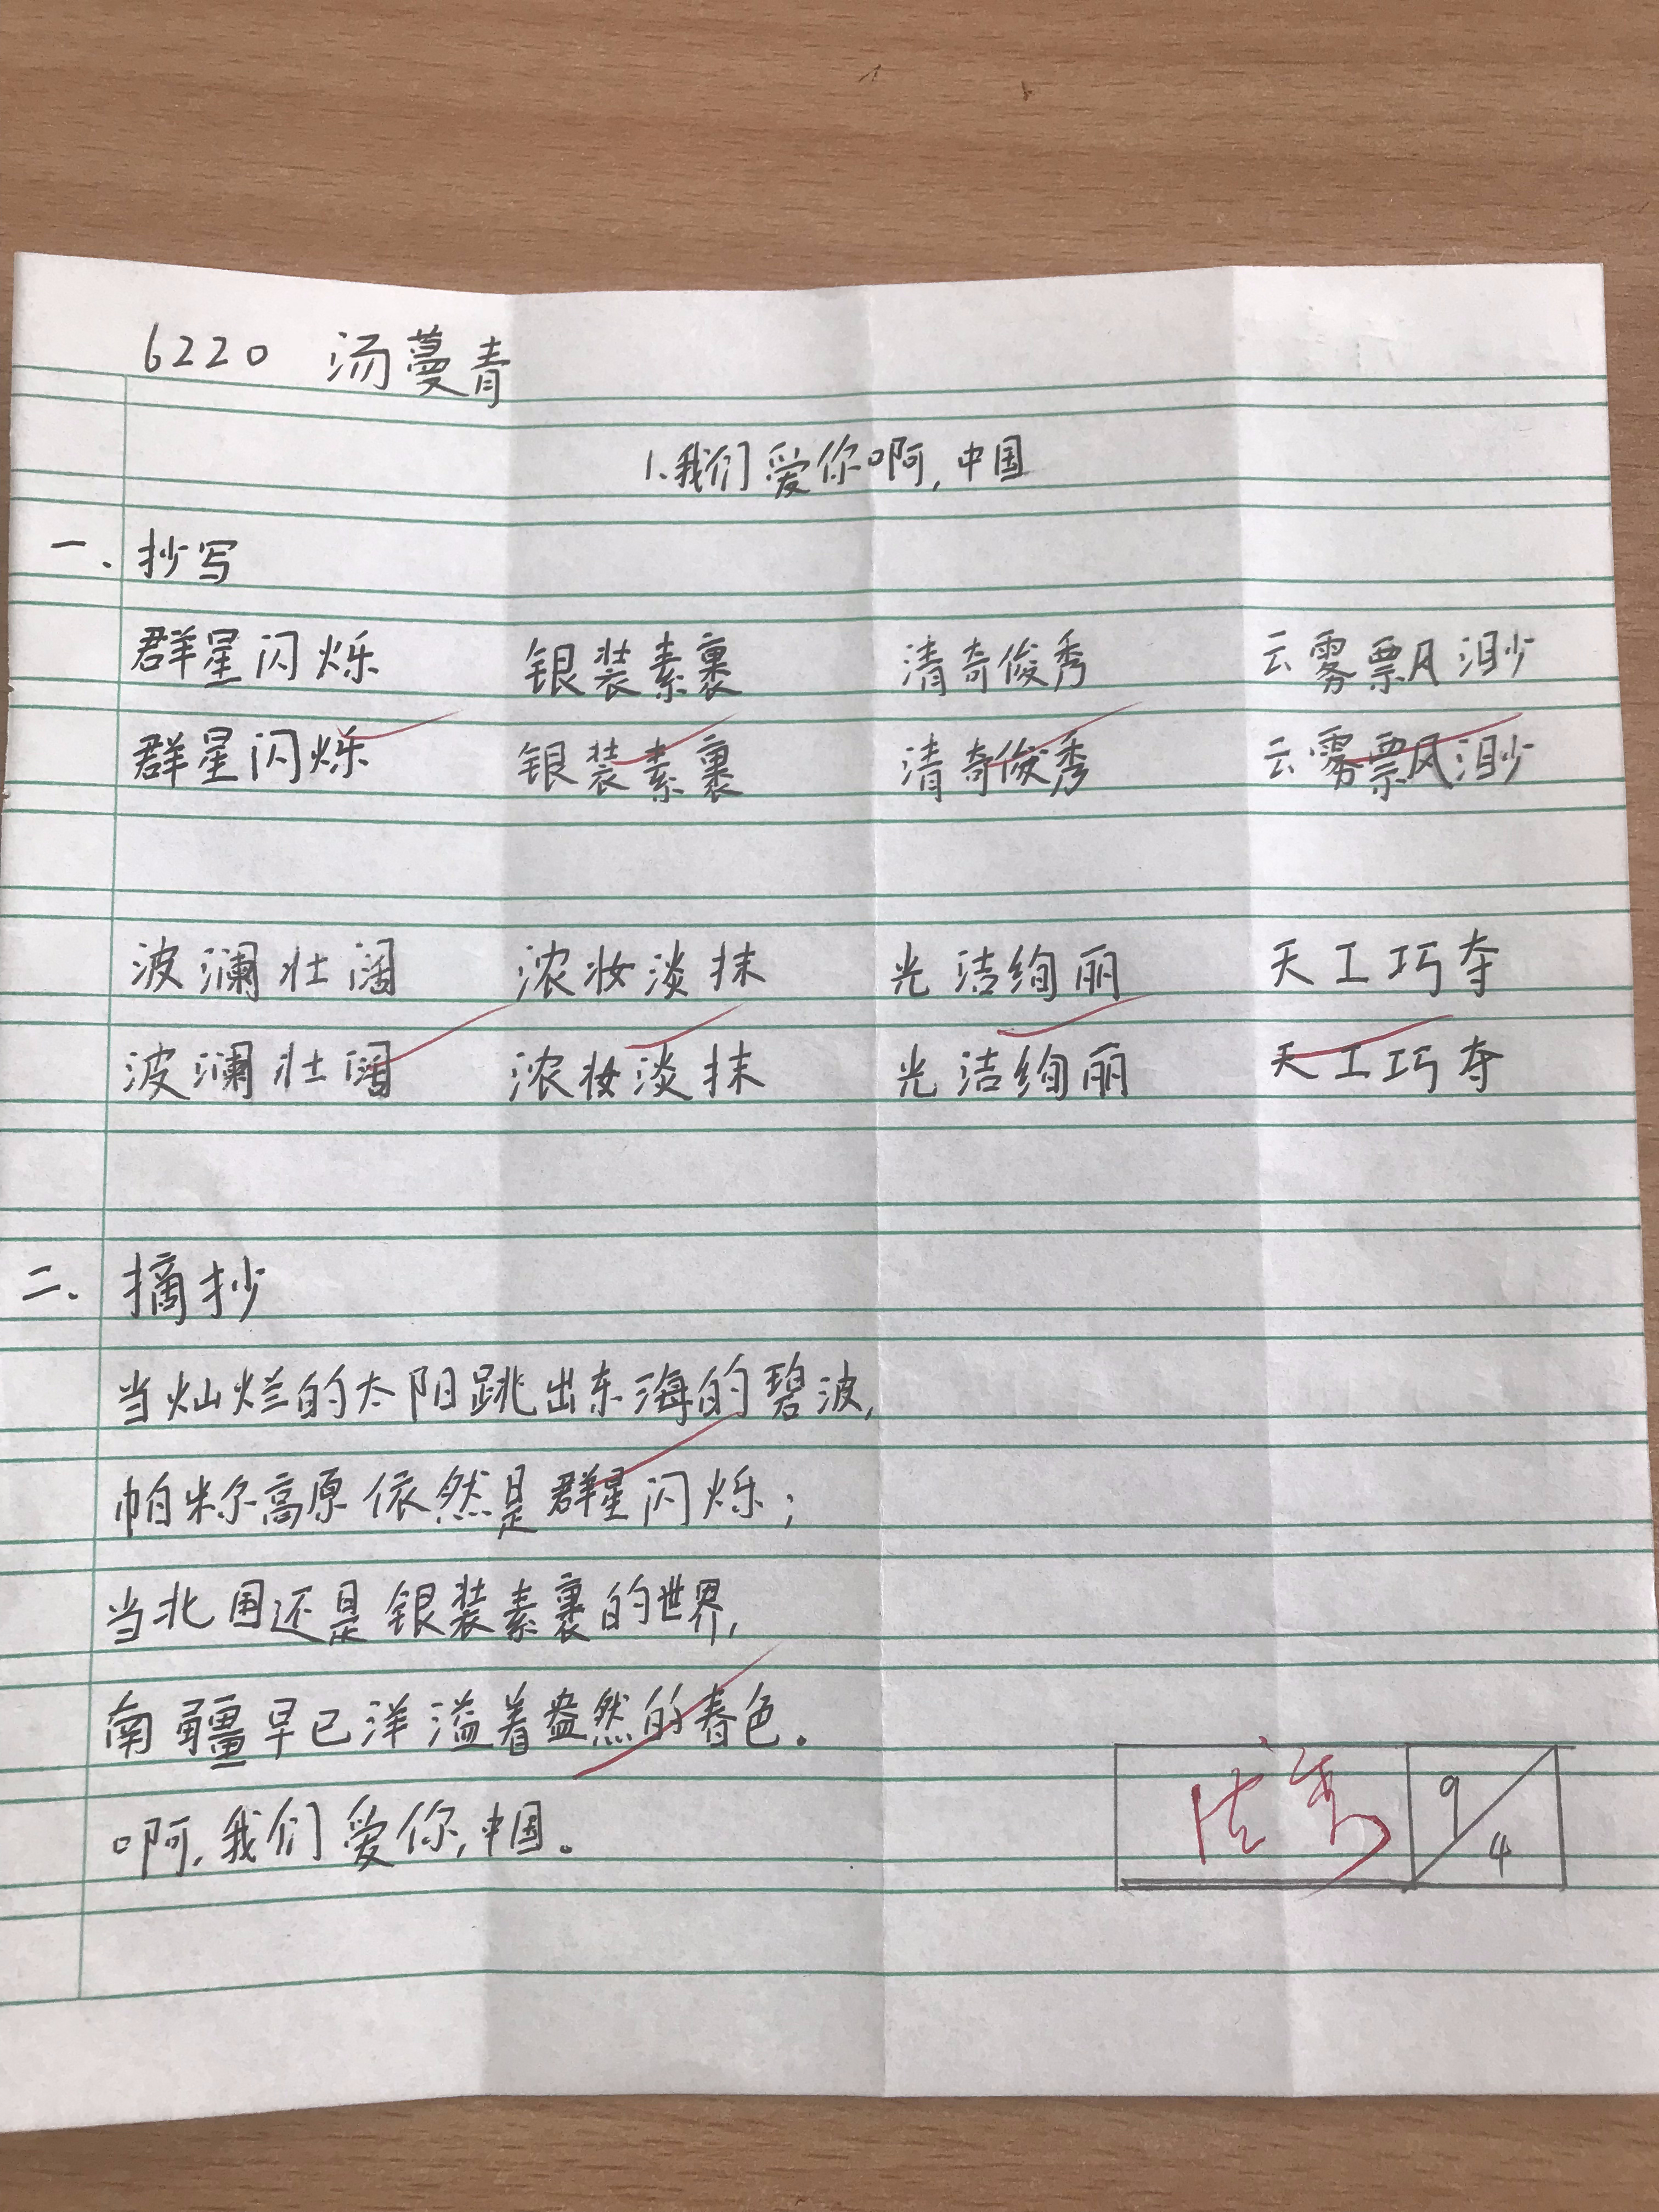 6220 汤蔓青
1.我们爱你啊,中国
一.抄写
群星闪烁 银装素裹 清奇俊秀 云雾飘渺
群星闪烁 银装素裹 清奇俊秀 云雾飘渺
波澜壮阔 浓妆淡抹 光洁绚丽 天工巧夺
波澜壮阔 浓妆淡抹 光洁绚丽 天工巧夺
二.摘抄
当灿烂的太阳跳出东海的碧波,
帕米尔高原依然是群星闪烁;
当北国还是银装素裹的世界,
南疆早已洋溢着盎然的春色。
啊,我们爱你,中国。
优秀 9/4